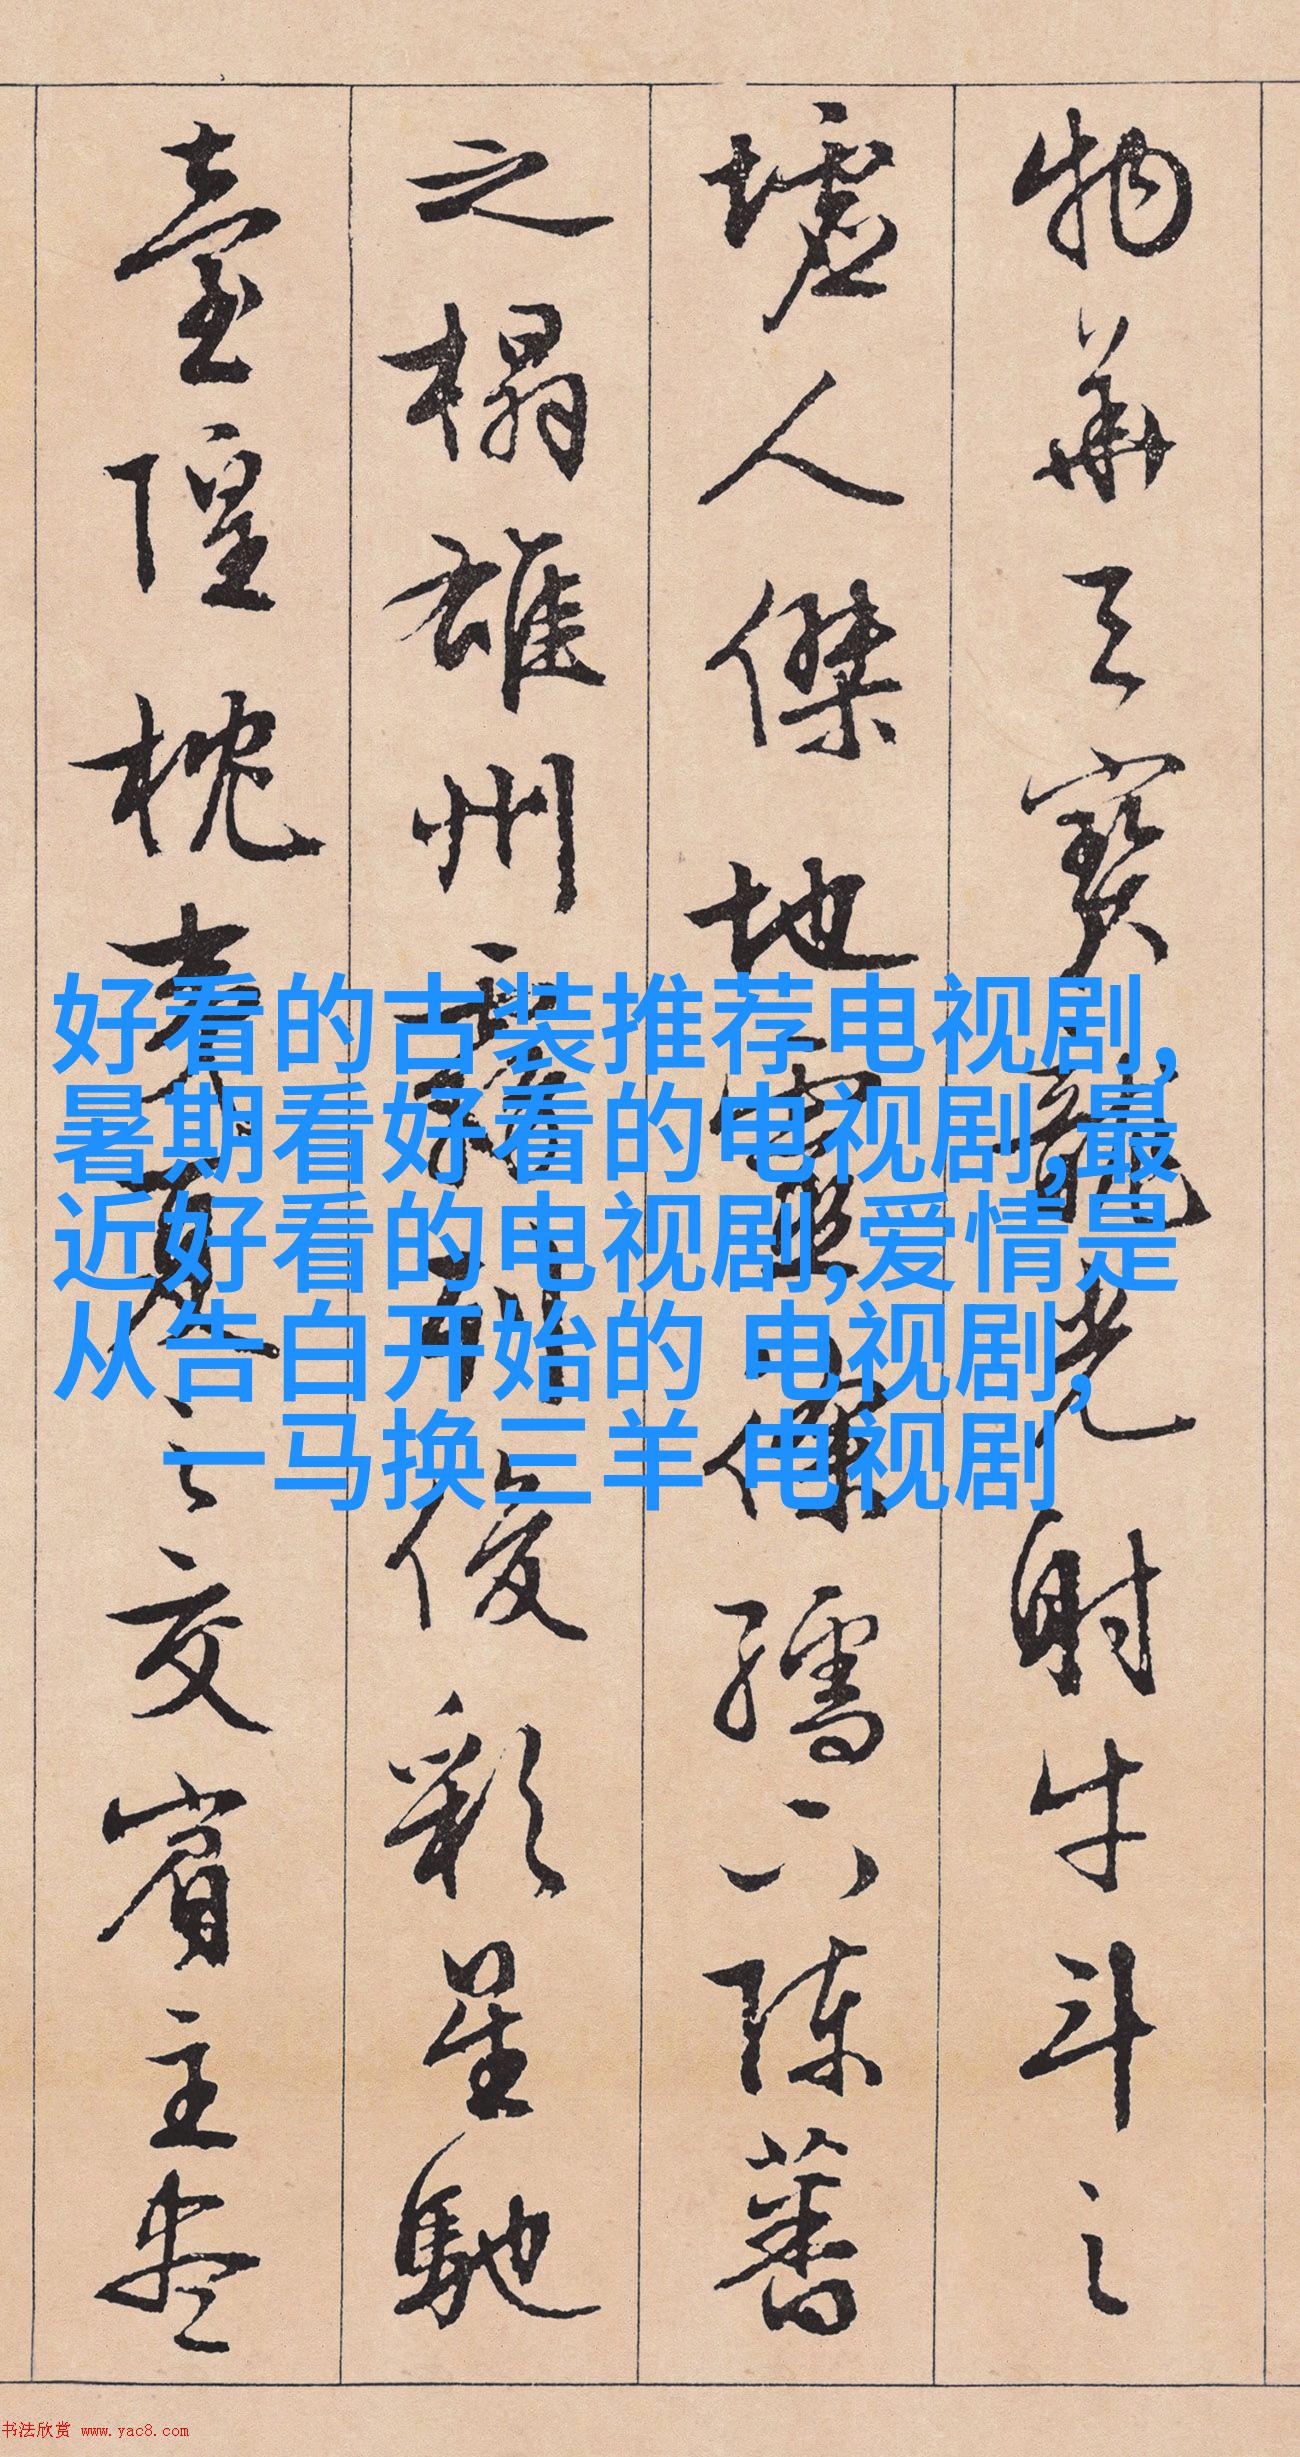 物華天寶龍光射牛斗之
墟人傑地靈徐孺下陳蕃
之榻雄州霧列俊彩星馳
臺隍枕夷夏之交賓主盡
好看的古装推荐电视剧,
暑期看好看的电视剧,最
近好看的电视剧,爱情是
从告白开始的 电视剧,
一马换三羊 电视剧
书法欣赏 www.yac8.com